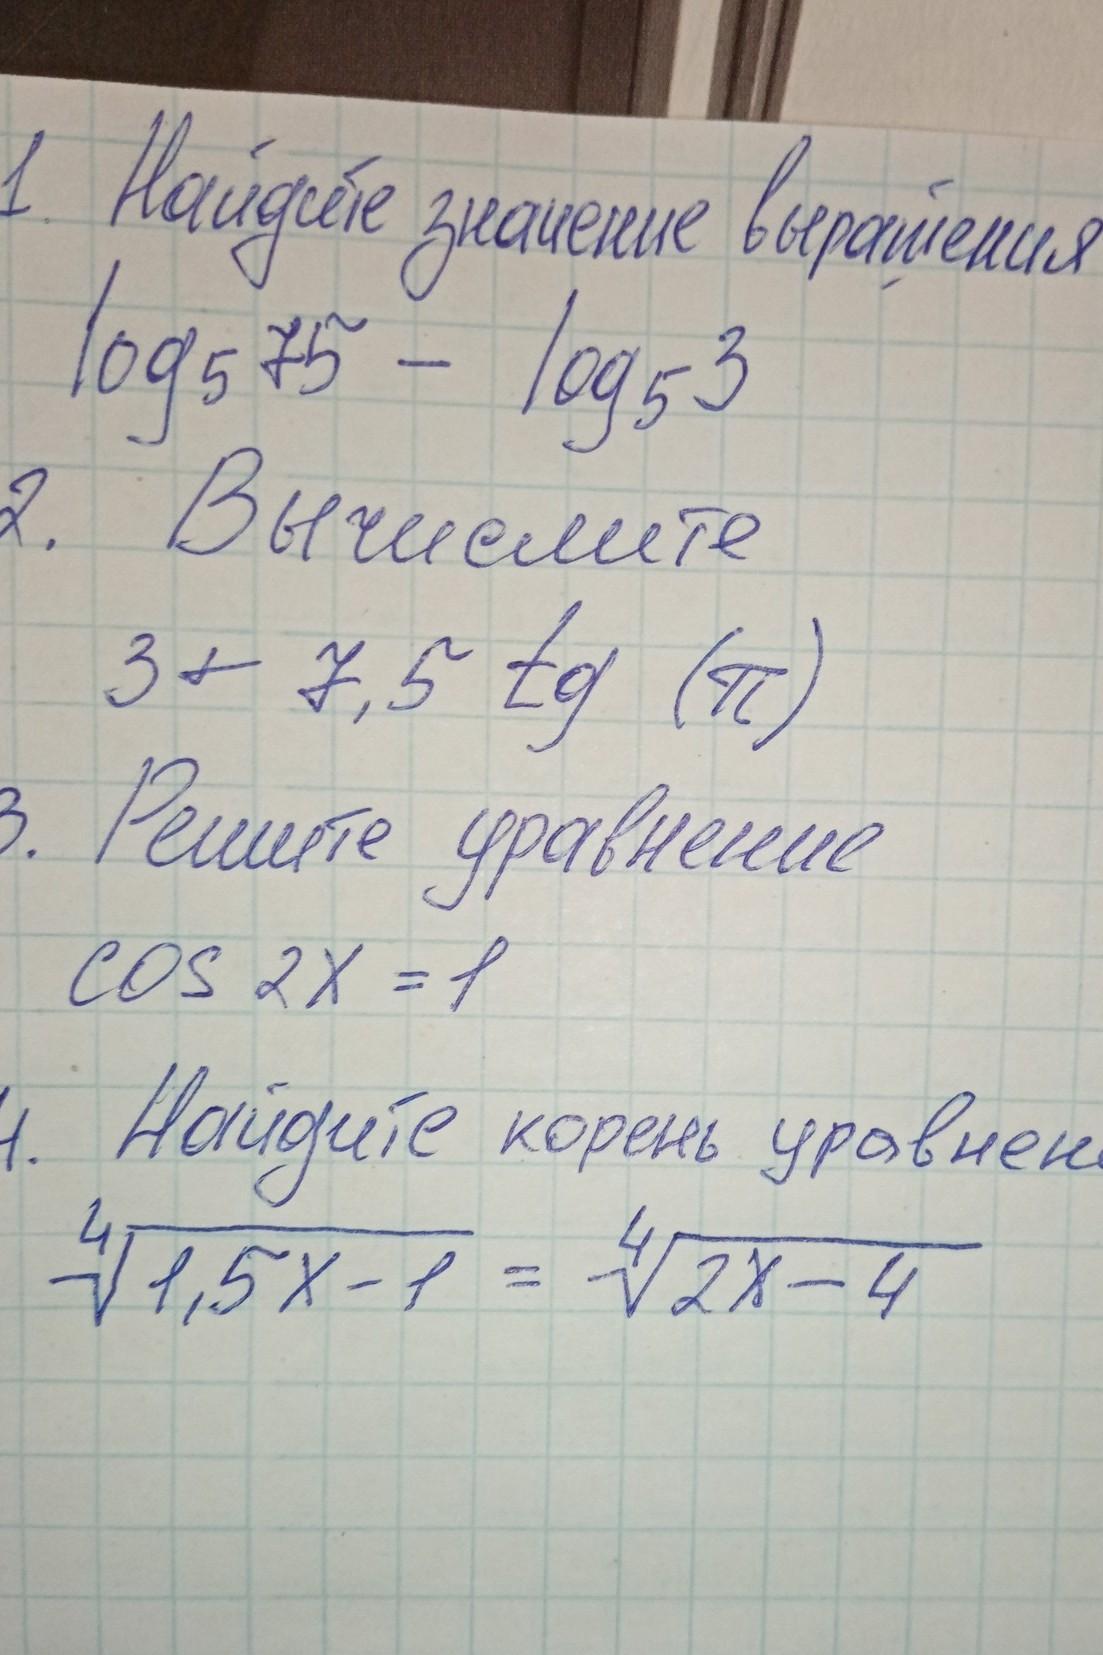 1. Найдите значение выражения
log₅75 - log₅3
2. Вычислите
3 + 7,5 tg (π)
3. Решите уравнение
cos 2x = 1
4. Найдите корень уравнен
∜(1,5x-1) = ∜(2x-4)